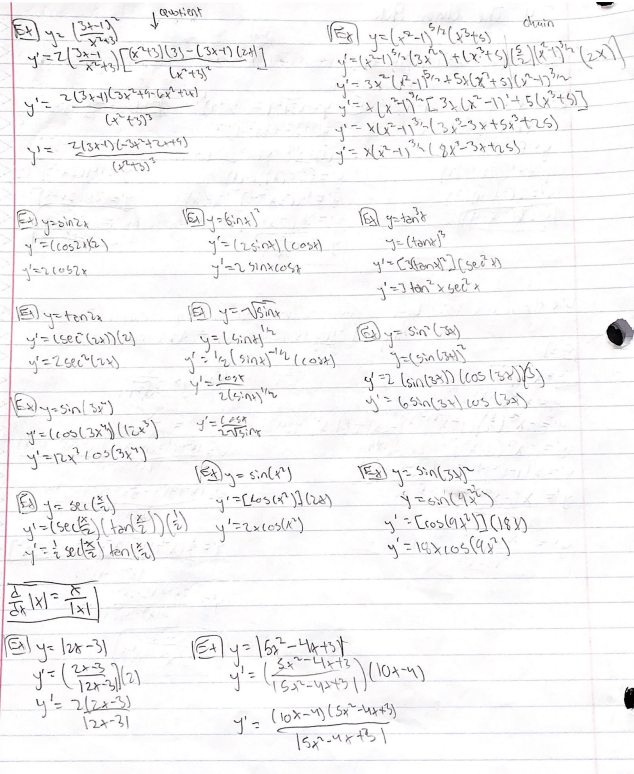 ↓ Quotient
Ex) y = ((3x-1)/(x²+3))²
y' = 2((3x-1)/(x²+3)) [((x²+3)(3) - (3x-1)(2x))/(x²+3)²]
y' = 2(3x-1)(3x²+9-6x²+2x)/(x²+3)³
y' = 2(3x-1)(-3x²+2x+9)/(x²+3)³
chain
Ex) y = (x²-1)^(5/2) (x³+5)
y' = (x²-1)^(5/2) (3x²) + (x³+5)(5/2)(x²-1)^(3/2) (2x)
y' = 3x²(x²-1)^(5/2) + 5x(x³+5)(x²-1)^(3/2)
y' = x(x²-1)^(3/2) [3x(x²-1)' + 5(x³+5)]
y' = x(x²-1)^(3/2) (3x³-3x+5x³+25)
y' = x(x²-1)^(3/2) (8x³-3x+25)
Ex) y = sin2x
y' = (cos2x)(2)
y' = 2cos2x
Ex) y = (sinx)²
y' = (2sinx)(cosx)
y' = 2 sinxcosx
Ex) y = tan³x
y = (tanx)³
y' = [3(tanx)²](sec²x)
y' = 3tan²x sec²x
Ex) y = tan2x
y' = (sec²(2x))(2)
y' = 2sec²(2x)
Ex) y = √sinx
y = (sinx)^(1/2)
y' = 1/2(sinx)^(-1/2) (cosx)
y' = cosx/(2(sinx)^(1/2))
y' = cosx/(2√sinx)
Ex) y = sin²(3x)
y = (sin(3x))²
y' = 2(sin(3x))(cos(3x))(3)
y' = 6sin(3x)cos(3x)
Ex) y = sin(3x⁴)
y' = (cos(3x⁴))(12x³)
y' = 12x³cos(3x⁴)
Ex) y = sec(x/2)
y' = (sec(x/2)(tan(x/2))(1/2)
y' = 1/2 sec(x/2) tan(x/2)
Ex) y = sin(x²)
y' = [cos(x²)](2x)
y' = 2xcos(x²)
Ex) y = sin(3x)²
y = sin(9x²)
y' = [cos(9x²)](18x)
y' = 18xcos(9x²)
d/dx |x| = x/|x|
Ex) y = |2x-3|
y' = ((2x-3)/|2x-3|)(2)
y' = 2(2x-3)/|2x-3|
Ex) y = |5x²-4x+3|
y' = ((5x²-4x+3)/|5x²-4x+3|)(10x-4)
y' = (10x-4)(5x²-4x+3)/|5x²-4x+3|